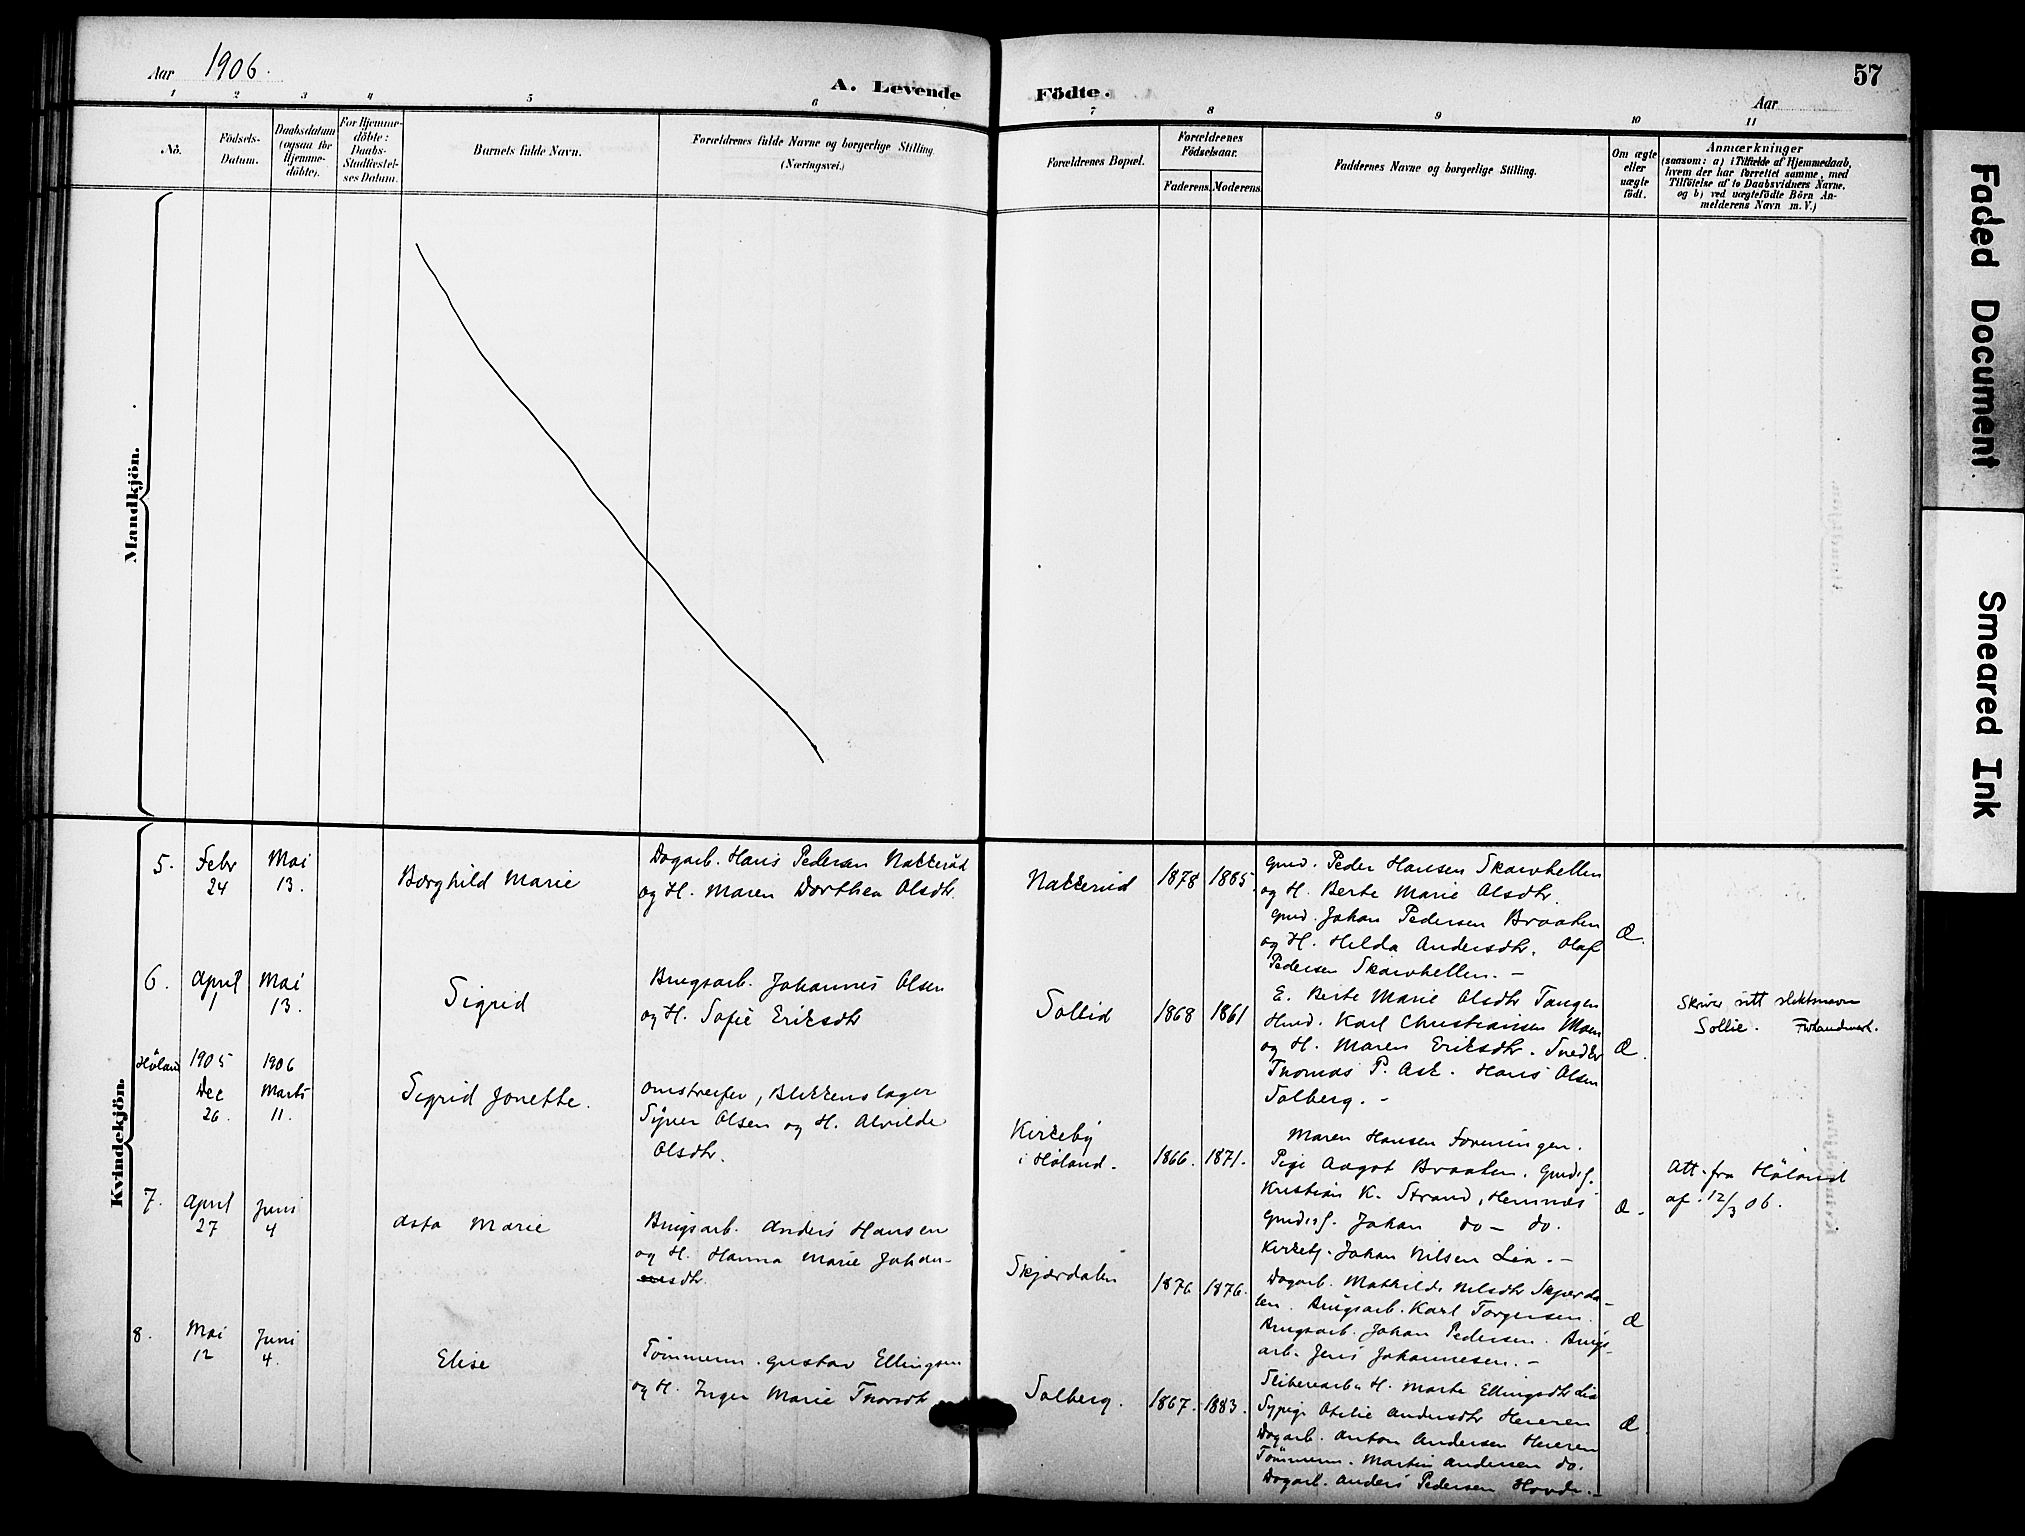 Aar 1906.
A. Levende Födte.
57
Aar
1 2 3 4 5 6 7 8 9 10 11
No.
Födsels-
Datum.
Daabsdatum
(ogsaa for
Hjemme-
döbte).
For Hjemme-
döbte:
Daabs-
Stadfæstel-
ses Datum.
Barnets fulde Navn.
Forældrenes fulde Navne og borgerlige Stilling
(Næringsvei.)
Forældrenes Bopæl.
Forældrenes
Födselsaar.
Faderens. Moderens.
Faddernes Navne og borgerlige Stilling.
Om ægte
eller
uægte
födt.
Anmærkninger
(saasom: a) i Tilfælde af Hjemmedaab,
hvem der har forrettet samme, med
Tilföielse af to Daabsvidners Navne,
og b) ved uægtefödte Börn An-
melderens Navn m. V.)
Mandkjön.
Kvindekjön.
5.
Febr
24
Mai
13.
Borghild Marie
Dagarb. Hans Pedersen Nakkerud
og H. Maren Dorthea Olsdtr.
Nakkerud
1878
1885
Gmd. Peder Hansen Skarvhellen
og H. Berte Marie Olsdtr.
Gmd. Johan Pedersen Braaten
og H. Helda Andersdtr. Olaf
Pedersen Skarvhellen. -
Æ.
6.
April
1
Mai
13.
Sigrid
Brugsarb. Johannes Olsen
og H. Sofie Eriksdtr
Sollid
1868
1861
E. Berte Marie Olsdtr Tangen
Hmd. Karl Christiansen Moen
og H. Maren Eriksdtr. Snedker
Thomas P. Ask. Hans Olsen
Solberg. -
Æ.
Skriver sitt slektsnavn
Sollie.
Höland
1905
Dec
26.
1906
Marts
11.
Sigrid Jonette.
Omstreifer, Blikkenslager
Syver Olsen og H. Alvilde
Olsdtr.
Kirkeby
i Höland.
1866.
1871.
Maren Hansen
Pige Aagot Braaten. Gmdsf.
Kristian K. Strand, Hemnæs
Gmdsf. Johan do - do.
Kirketj. Johan Nilsen Lia. -
Æ.
Att. fra Höland
af 12/3 06.
7.
April
27
Juni
4
Asta Marie
Brugsarb. Anders Hansen
og H. Hanna Marie Johan-
sdtr.
Skjærdalen
1876
1876.
Dagarb. Mathilde Nilsdtr Skjærda-
len. Brugsarb. Karl Torgersen.
Brugsarb. Johan Pedersen. Brugs-
arb. Jens Johannesen. -
Æ
8.
Mai
12
Juni
4.
Elise
Tömmerm. Gustav Ellingsen
og H. Inger Marie Thorsdtr
Solberg.
1867.
1883.
Sliberiarb. H. Marte Ellingsdtr Lia
Sypige Otilie Andersdtr Heieren
Dagarb. Anton Andersen Heieren
Tömmerm. Martin Andersen do.
Dagarb. Anders Pedersen Hovde. -
Æ.
Faded Document
Smeared Ink